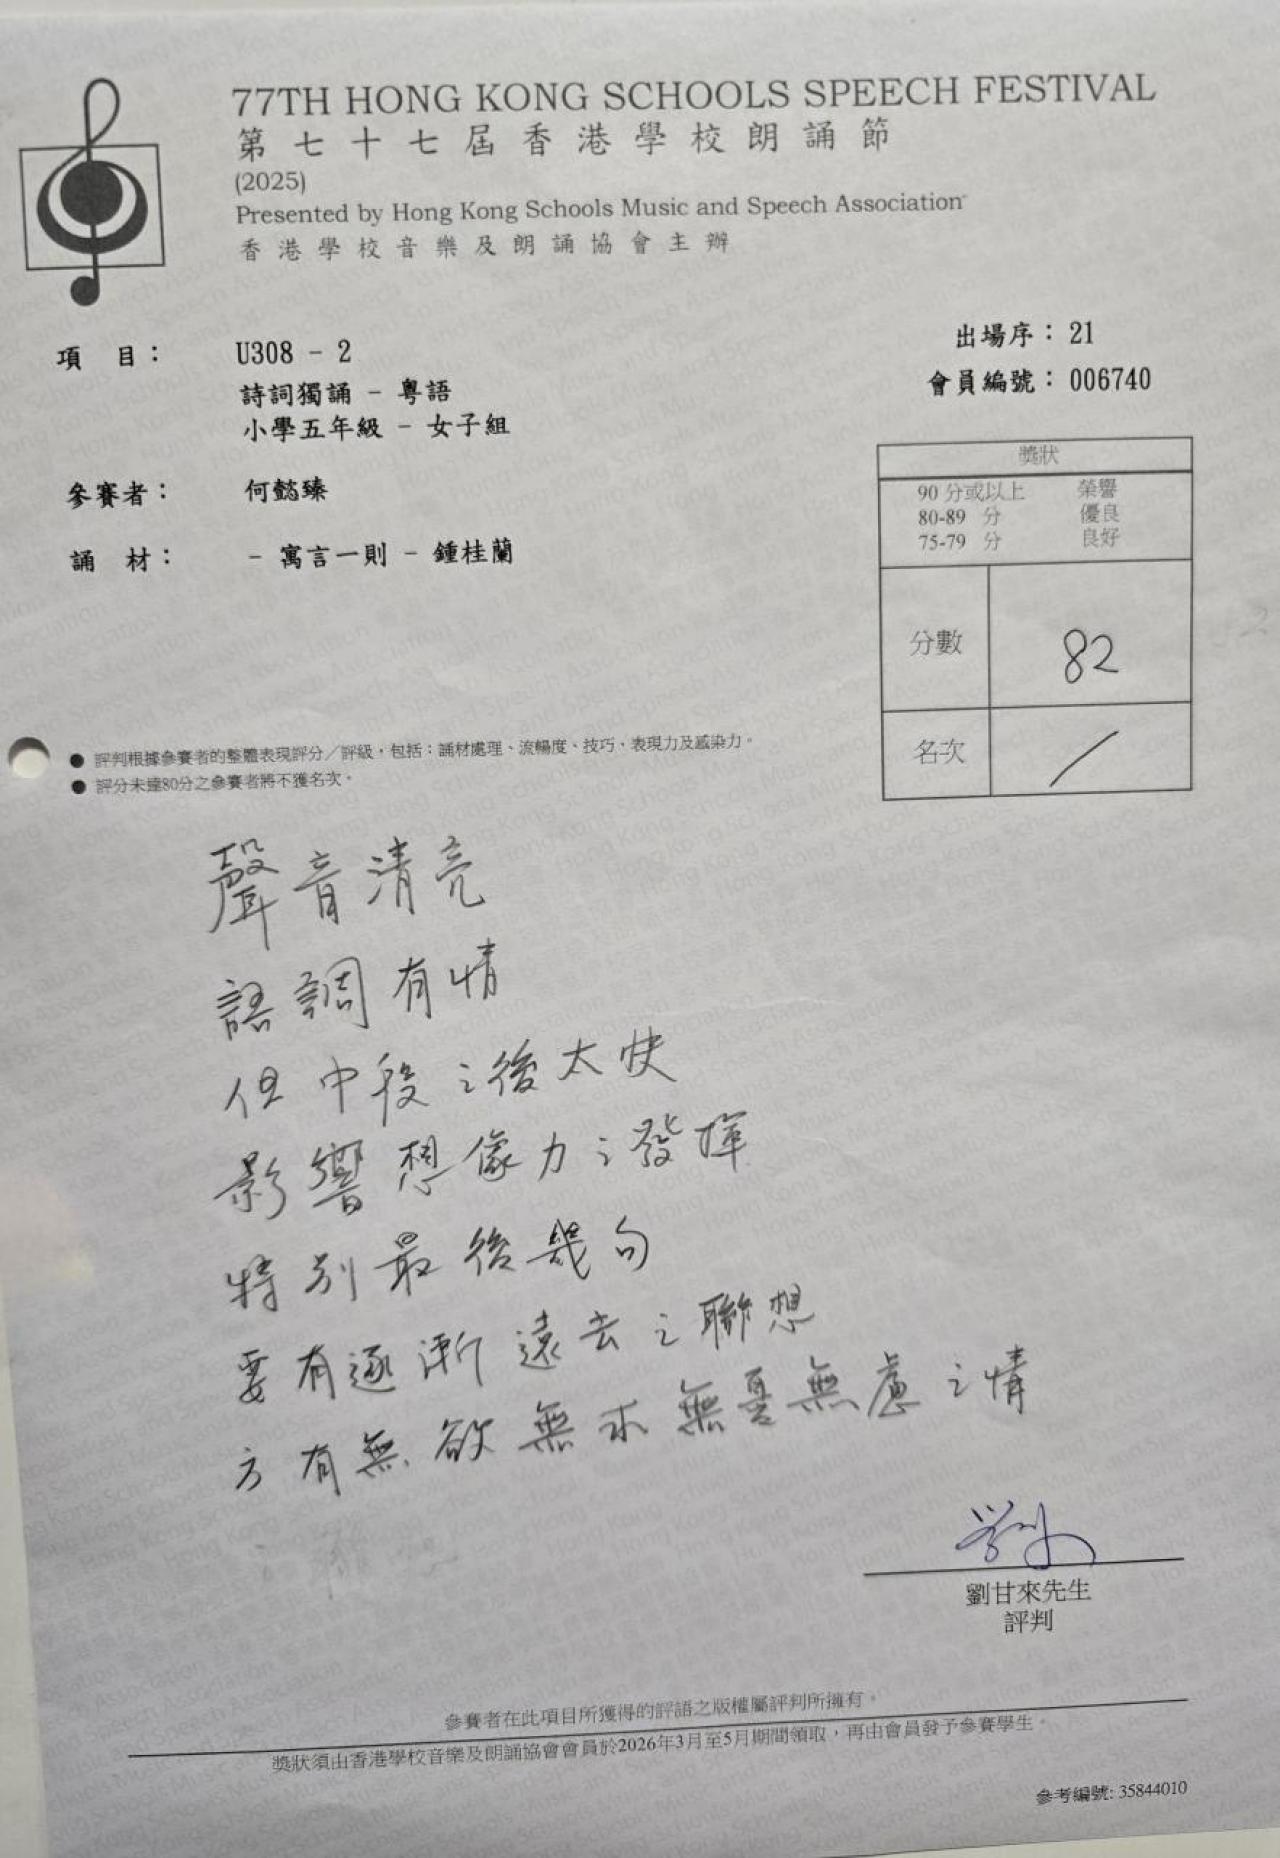 77TH HONG KONG SCHOOLS SPEECH FESTIVAL
第七十七屆香港學校朗誦節
(2025)
Presented by Hong Kong Schools Music and Speech Association
香港學校音樂及朗誦協會主辦
項 目： U308 - 2
出場序：21
詩詞獨誦 - 粵語
會員編號：006740
小學五年級 - 女子組
參賽者： 何懿臻
誦 材： - 寓言一則 - 鍾桂蘭
獎狀
90 分或以上 榮譽
80-89 分 優良
75-79 分 良好
分數 82
名次 /
● 評判根據參賽者的整體表現評分／評級，包括：誦材處理、流暢度、技巧、表現力及感染力。
● 評分未達80分之參賽者將不獲名次。
聲音清亮
語調有情
但中段之後太快
影響想像力之發揮
特別最後幾句
要有逐漸遠去之聯想
方有無欲無求無憂無慮之情
劉甘來先生
評判
參賽者在此項目所獲得的評語之版權屬評判所擁有。
獎狀須由香港學校音樂及朗誦協會會員於2026年3月至5月期間領取，再由會員發予參賽學生。
參考編號: 35844010